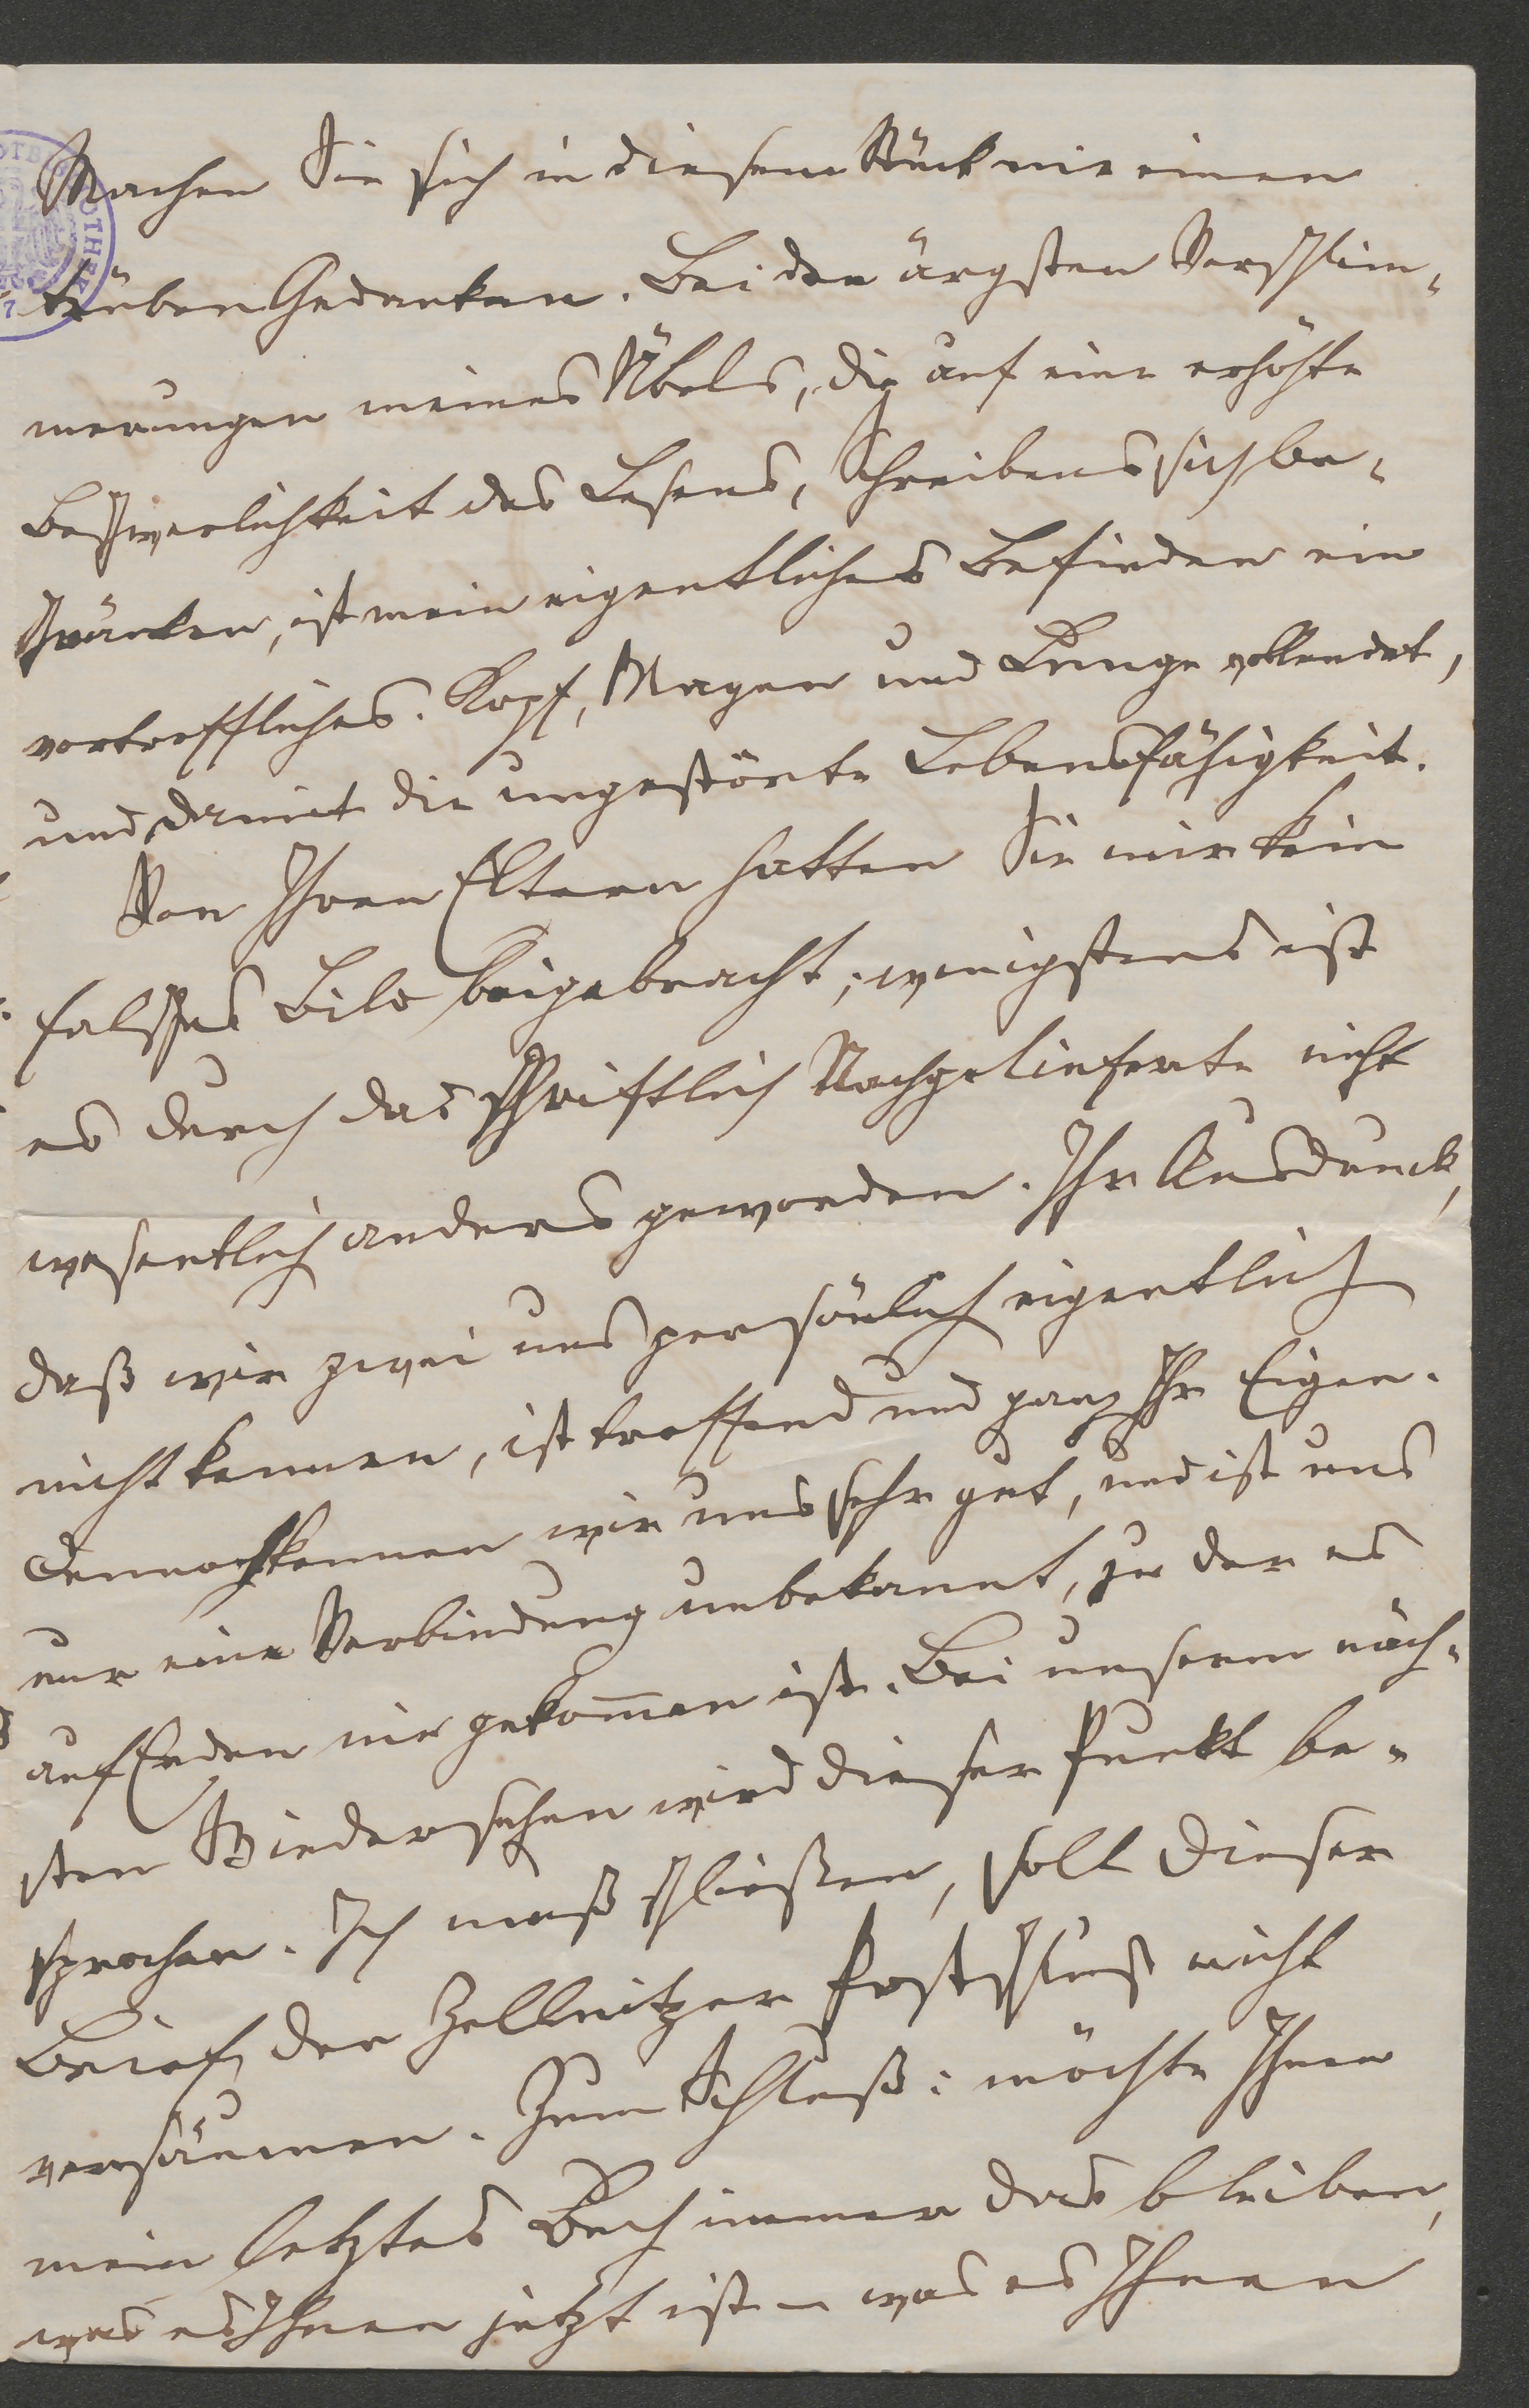 Machen Sie sich in diesem Stück nie einen
trüben Gedanken. Bei den ärgsten Verschlim-
merungen meines Übels, die auf eine erhöhte
Beschwerlichkeit des Lesens, Schreibens sich be-
schränken, ist mein eigentliches Befinden ein
vortreffliches. Kopf, Magen und Lunge vollendet,
und damit die ungestörte Lebensfähigkeit.
Von Ihren Eltern hatten Sie mir kein
falsches Bild beigebracht; wenigstens ist
es durch das schriftlich Nachgelieferte nicht
wesentlich anders geworden. Ihr Ausdruck,
daß wir zwei uns persönlich eigentlich
nicht kennen, ist treffend und ganz Ihr Eigen.
Dennoch kennen wir uns sehr gut, und ist uns
nur eine Verbindung unbekannt, zu der es
auf Erden nie gekom̅en ist. Bei unserem näch-
sten Wiedersehen wird dieser Punkt be-
sprochen. Ich muß schließen, soll dieser
Brief den Zellnitzer Postschluß nicht
versäumen. Zum Schluß: möchte Ihnen
mein letztes Buch immer das bleiben,
was es Ihnen jetzt ist – was es Ihnen